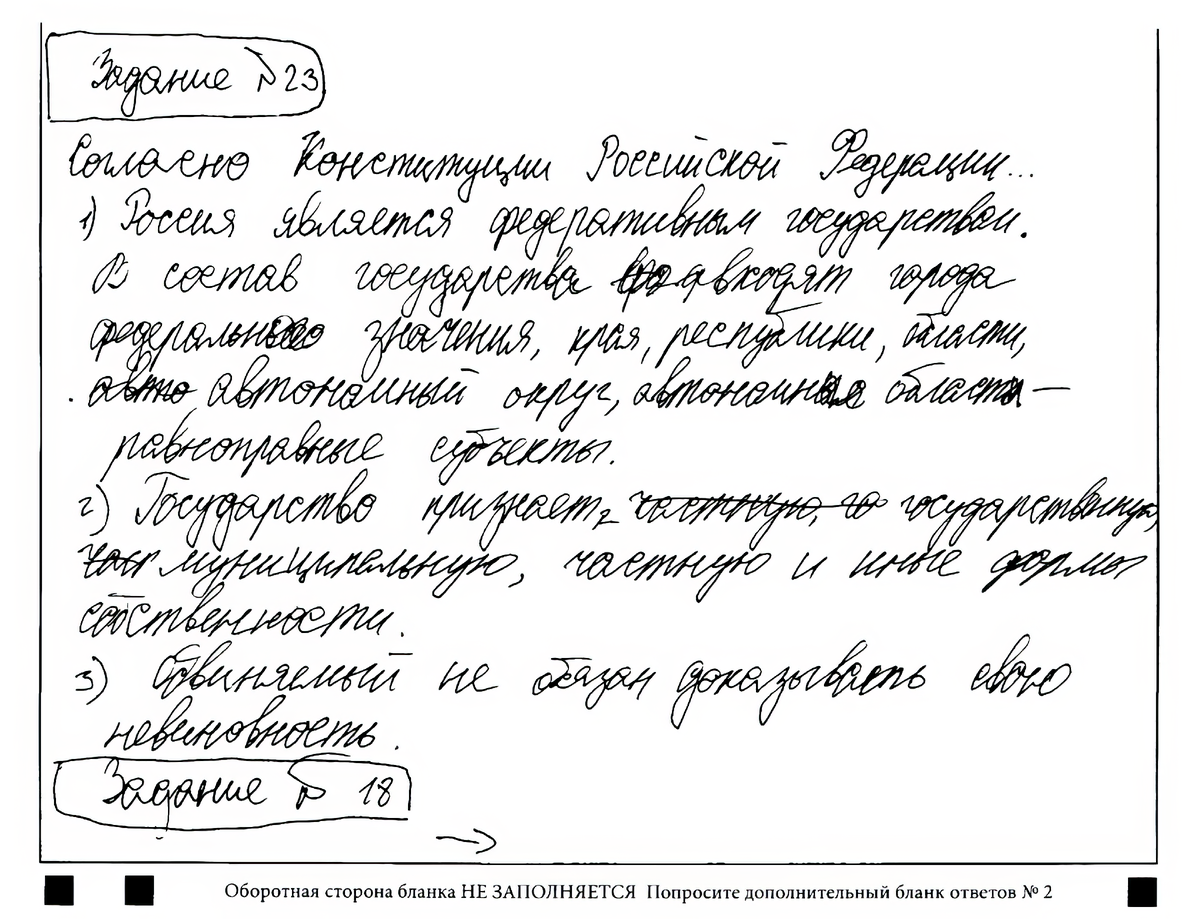 Задание №23
Согласно Конституции Российской Федерации...
1) Россия является федеративным государством.
В состав государства входят города
федерального значения, края, республики, области,
авто автономный округ, автономная область —
равноправные субъекты.
2) Государство признает частную, го государственную,
част муниципальную, частную и иные формы
собственности.
3) Обвиняемый не обязан доказывать свою
невиновность.
Задание № 18
→
Оборотная сторона бланка НЕ ЗАПОЛНЯЕТСЯ Попросите дополнительный бланк ответов № 2